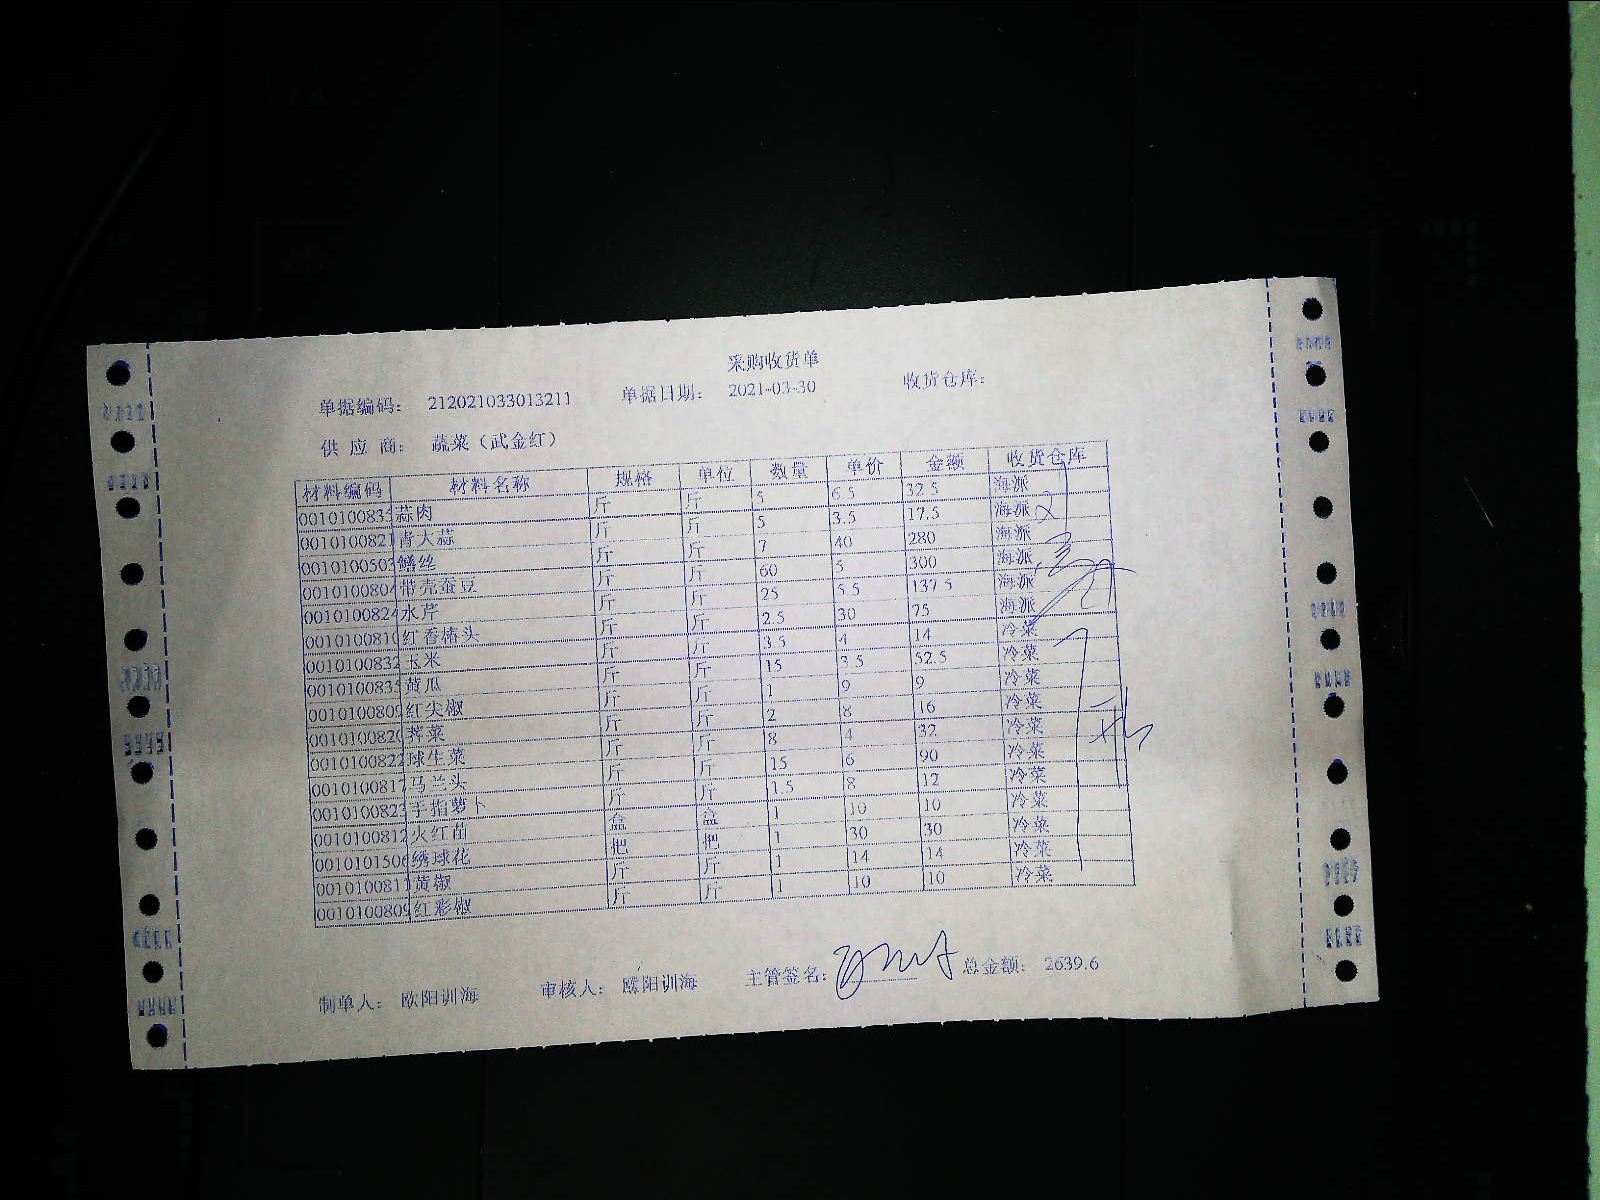 采购收货单
单据编码: 212021033013211 单据日期: 2021-03-30 收货仓库:
供应商: 蔬菜(武金红)
材料编码 材料名称 规格 单位 数量 单价 金额 收货仓库
0010100835 蒜肉 斤 斤 5 6.5 32.5 海派
0010100821 青大蒜 斤 斤 5 3.5 17.5 海派
0010100503 鳝丝 斤 斤 7 40 280 海派
0010100804 带壳蚕豆 斤 斤 60 5 300 海派
0010100824 水芹 斤 斤 25 5.5 137.5 海派
0010100810 红香椿头 斤 斤 2.5 30 75 海派
0010100832 玉米 斤 斤 3.5 4 14 冷菜
0010100835 黄瓜 斤 斤 15 3.5 52.5 冷菜
0010100809 红尖椒 斤 斤 1 9 9 冷菜
0010100820 荠菜 斤 斤 2 8 16 冷菜
0010100822 球生菜 斤 斤 8 4 32 冷菜
0010100817 马兰头 斤 斤 15 6 90 冷菜
0010100823 手指萝卜 斤 斤 1.5 8 12 冷菜
0010100812 火红菌 盒 盒 1 10 10 冷菜
0010101506 绣球花 把 把 1 30 30 冷菜
0010100811 黄椒 斤 斤 1 14 14 冷菜
0010100809 红彩椒 斤 斤 1 10 10 冷菜
制单人: 欧阳训海 审核人: 欧阳训海 主管签名: 总金额: 2639.6